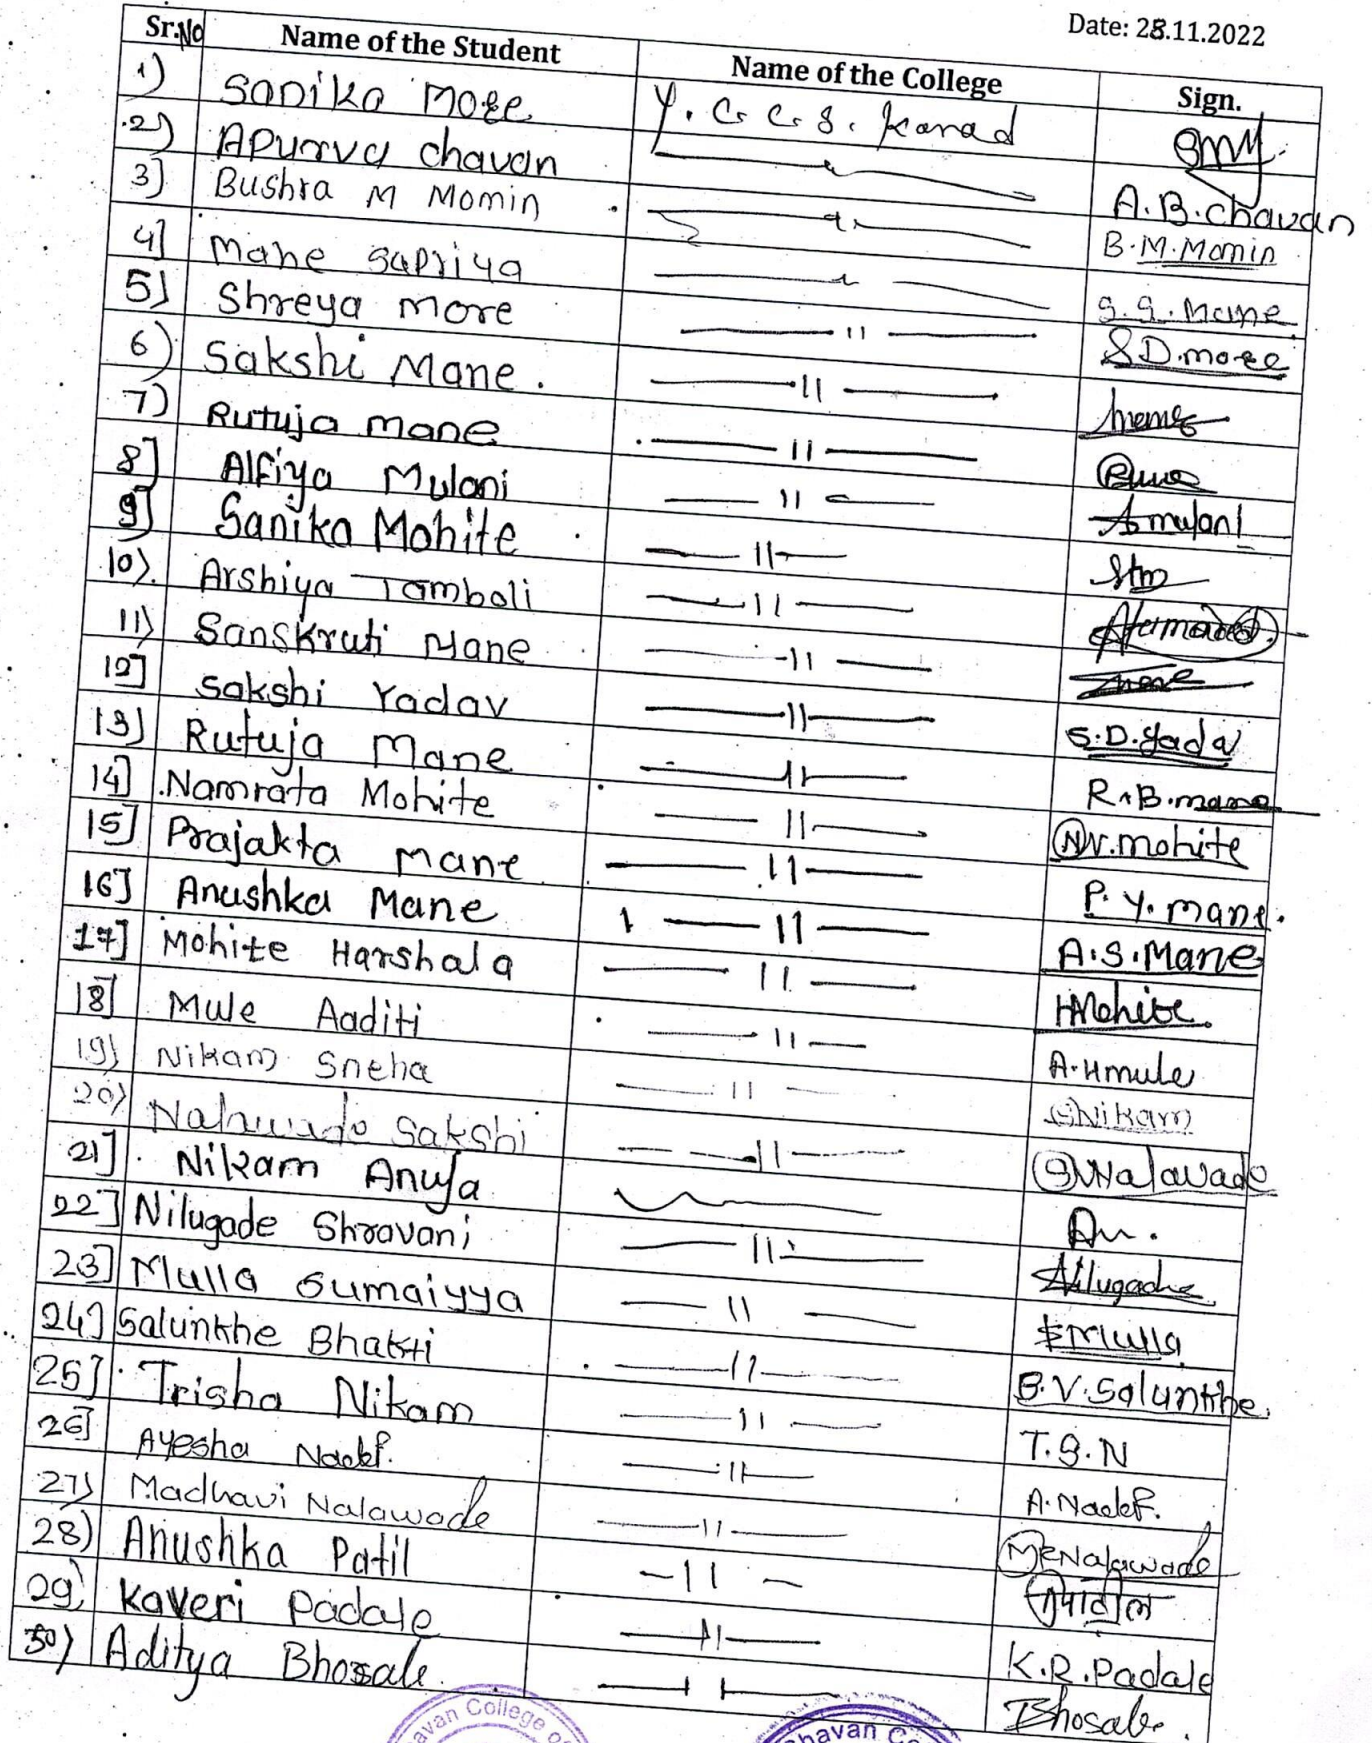 Date: 28.11.2022
Sr.No Name of the Student Name of the College Sign.
1) Sanika More Y. C. C. S. Karad
2) Apurva chavan A.B.chavan
3] Bushra M Momin B.M.Momin
4] Mane Supriya S.S.Mane
5] Shreya more — 11 — S.D.more
6) Sakshi Mane. — 11 —
7) Rutuja mane — 11 —
8] Alfiya Mulani — 11 — Amulani
9] Sanika Mohite — 11 —
10). Arshiya Tamboli — 11 —
11) Sanskruti Mane — 11 —
12] Sakshi Yadav — 11 — S.D.Yadav
13) Rutuja Mane — 11 — R.B.mane
14] Namrata Mohite — 11 — N.V.mohite
15] Prajakta mane — 11 — P. Y. mane.
16] Anushka Mane — 11 — A.S.Mane
17] Mohite Harshala — 11 — HMohite.
18] Mule Aaditi — 11 — A.Hmule
19) Nikam Sneha — 11 — SNikam
20) Nalawade Sakshi — 11 — S.Nalawade
21] Nikam Anuja
22] Nilugade Shravani — 11 — Nilugade
23] Mulla Sumaiyya — 11 — SMulla
24] Salunkhe Bhakti — 11 — B.V.Salunkhe.
25] Trisha Nikam — 11 — T.S.N
26] Ayesha Naikf. — 11 — A.Naikf.
27) Madhavi Nalawade — 11 — Nalawade
28) Anushka Patil — 11 — पाटील
29) Kaveri Padale — 11 — K.R.Padale
30) Aditya Bhosale. — 11 — Bhosale.
College of